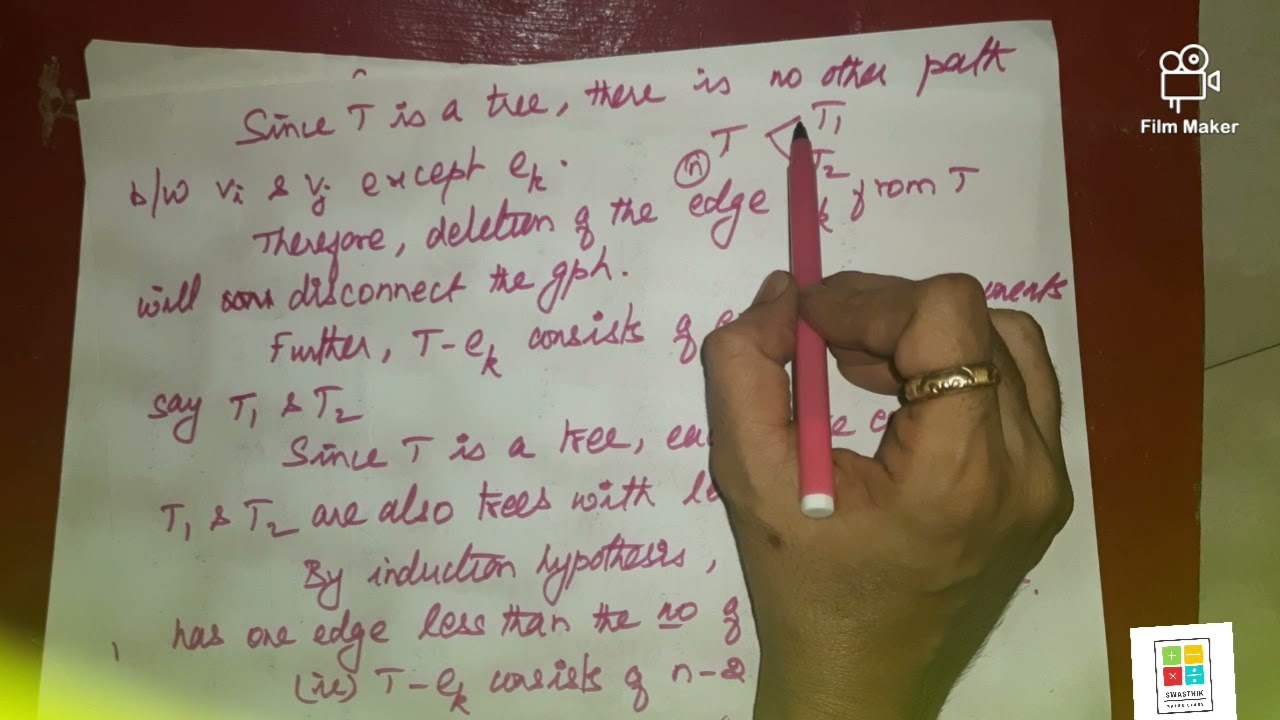 Since T is a tree, there is no other path
b/w vi & vj except ek.
T T1
T2
n
Therefore, deletion of the edge k from T
will disconnect the gph.
Further, T-ek consists of
say T1 & T2
Since T is a tree,
T1 & T2 are also trees with
By induction hypothesis,
has one edge less than the no of
(ie) T-ek consists of n-2
Film Maker
SWASTHIK